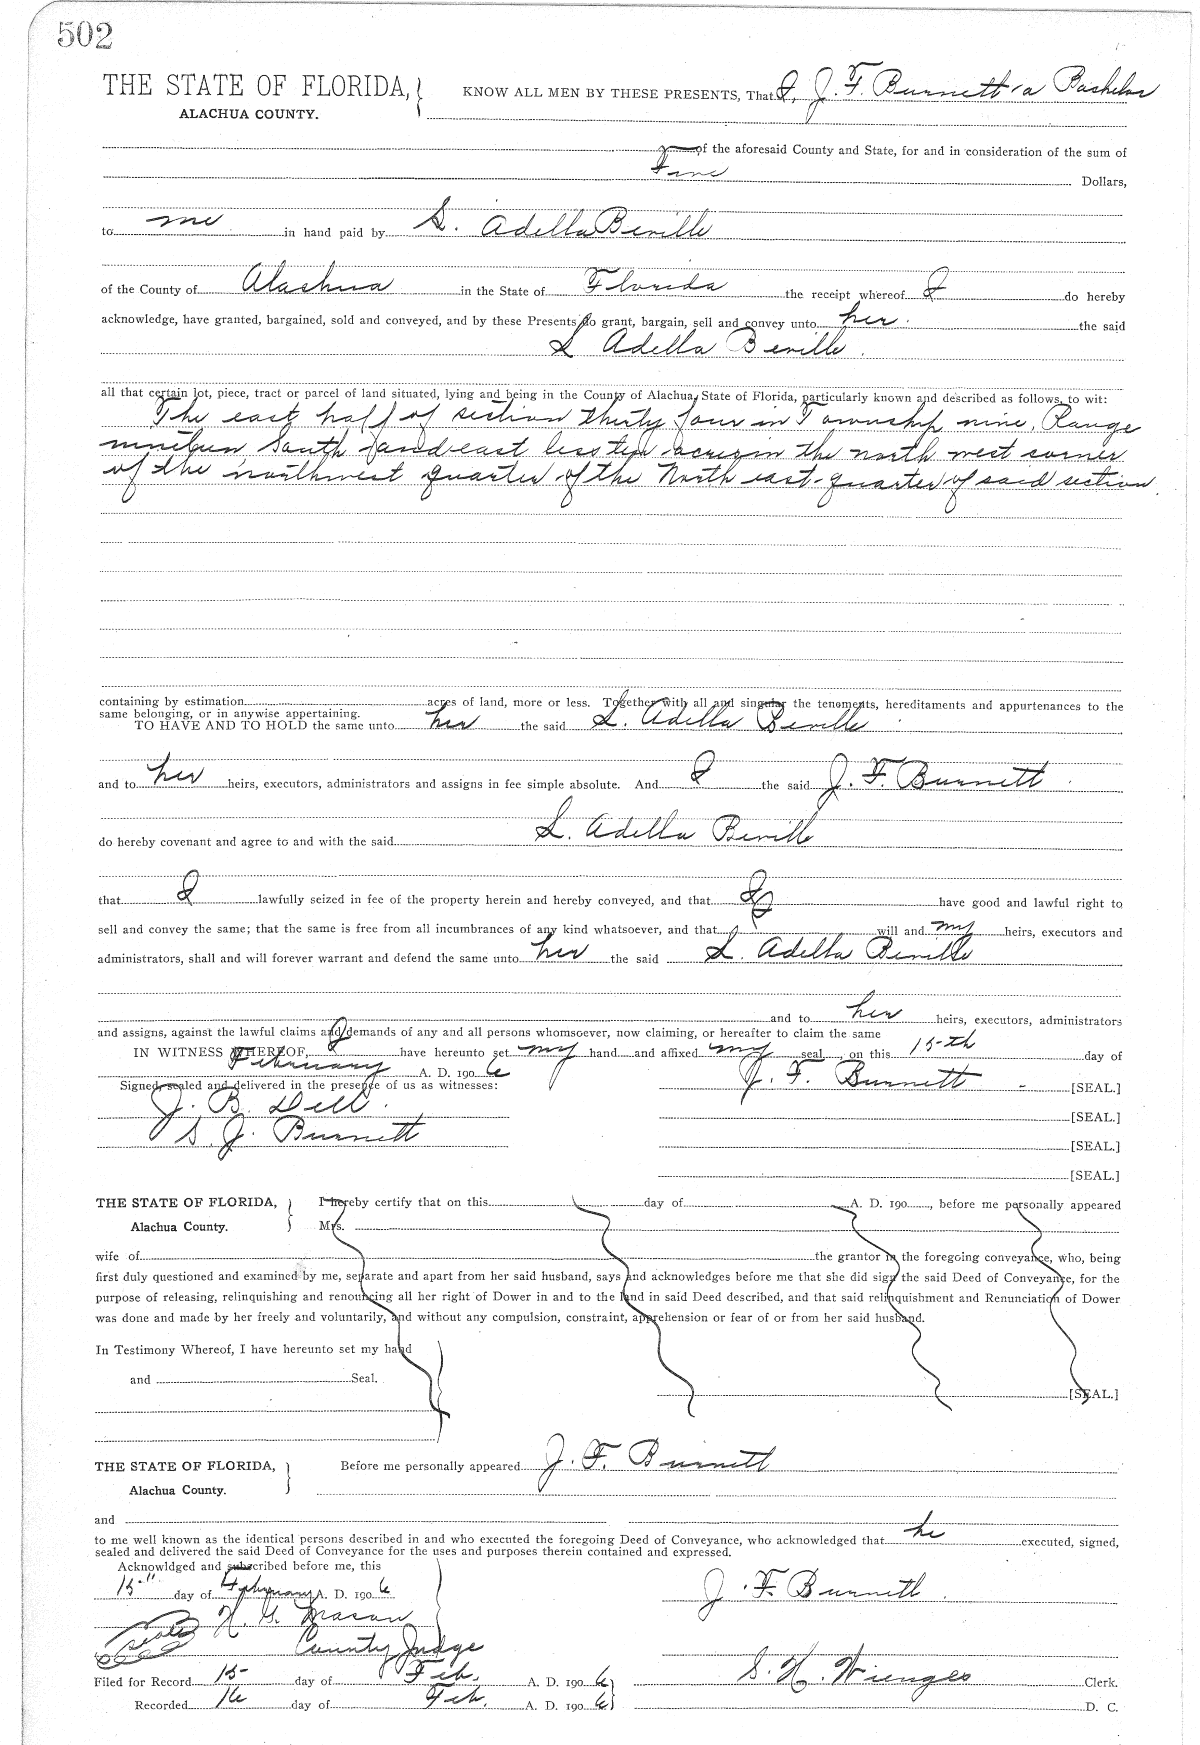 502
THE STATE OF FLORIDA, } KNOW ALL MEN BY THESE PRESENTS, That I, J. F. Burnett, a Bachelor
ALACHUA COUNTY.
of the aforesaid County and State, for and in consideration of the sum of
Five Dollars,
to me in hand paid by S. Adella Beville
of the County of Alachua in the State of Florida the receipt whereof I do hereby
acknowledge, have granted, bargained, sold and conveyed, and by these Presents do grant, bargain, sell and convey unto her the said
S Adella Beville.
all that certain lot, piece, tract or parcel of land situated, lying and being in the County of Alachua, State of Florida, particularly known and described as follows, to wit:
The east half of section thirty four in Township nine, Range
nineteen South and east less ten acres in the north west corner
of the northwest quarter of the North east-quarter of said section.
containing by estimation acres of land, more or less. Together with all and singular the tenements, hereditaments and appurtenances to the
same belonging, or in anywise appertaining.
TO HAVE AND TO HOLD the same unto her the said S. Adella Beville
and to her heirs, executors, administrators and assigns in fee simple absolute. And I the said J. F. Burnett.
do hereby covenant and agree to and with the said S. Adella Beville
that I lawfully seized in fee of the property herein and hereby conveyed, and that I have good and lawful right to
sell and convey the same; that the same is free from all incumbrances of any kind whatsoever, and that I will and my heirs, executors and
administrators, shall and will forever warrant and defend the same unto her the said S. Adella Beville
and to her heirs, executors, administrators
and assigns, against the lawful claims and demands of any and all persons whomsoever, now claiming, or hereafter to claim the same
IN WITNESS WHEREOF, I have hereunto set my hand and affixed my seal, on this 15th day of
February A. D. 1906
J. F. Burnett [SEAL.]
Signed, sealed and delivered in the presence of us as witnesses:
J. B. Dell. [SEAL.]
S. J. Burnett [SEAL.]
[SEAL.]
THE STATE OF FLORIDA, } I hereby certify that on this day of A. D. 190 , before me personally appeared
Alachua County. Mrs.
wife of the grantor in the foregoing conveyance, who, being
first duly questioned and examined by me, separate and apart from her said husband, says and acknowledges before me that she did sign the said Deed of Conveyance, for the
purpose of releasing, relinquishing and renouncing all her right of Dower in and to the land in said Deed described, and that said relinquishment and Renunciation of Dower
was done and made by her freely and voluntarily, and without any compulsion, constraint, apprehension or fear of or from her said husband.
In Testimony Whereof, I have hereunto set my hand
and Seal.
[SEAL.]
THE STATE OF FLORIDA, } Before me personally appeared J. F. Burnett
Alachua County.
and
to me well known as the identical persons described in and who executed the foregoing Deed of Conveyance, who acknowledged that he executed, signed,
sealed and delivered the said Deed of Conveyance for the uses and purposes therein contained and expressed.
Acknowldged and subscribed before me, this
15" day of February A. D. 1906 J. F. Burnett.
Seal H. G. Mason
County Judge
Filed for Record 15 day of Feb. A. D. 1906 } S. H. Wienges Clerk.
Recorded 16 day of Feb. A. D. 1906 } D. C.